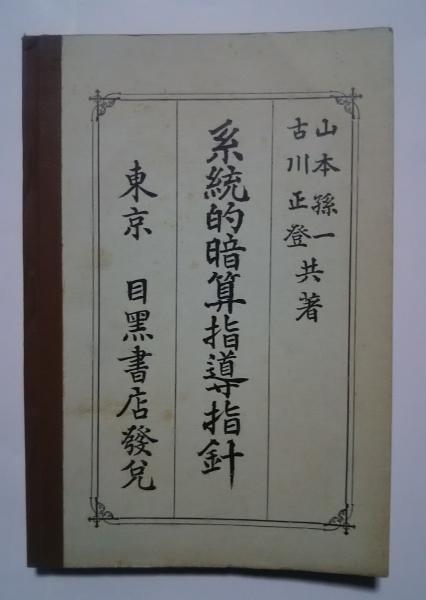 山本孫一
古川正登
共著
系統的暗算指導指針
東京 目黑書店發兌